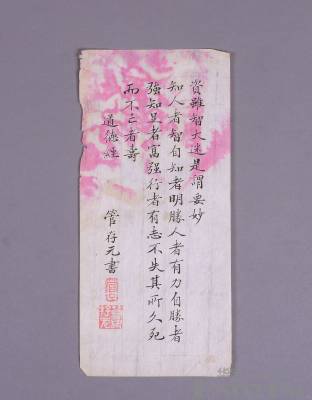 資雖智大迷是謂要妙
知人者智自知者明勝人者有力自勝者
強知足者富強行者有志不失其所久死
而不亡者壽
道德經
管存元書